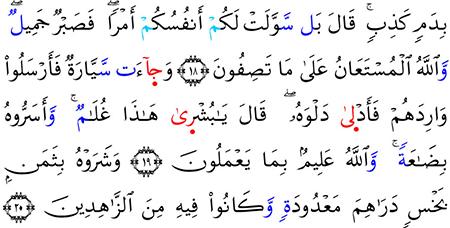 بِدَمٖ كَذِبٖۚ قَالَ بَل سَّوَّلَتْ لَكُمْ أَنفُسُكُمْ أَمْرٗاۖ فَصَبْرٞ جَمِيلٞۖ
وَّاللَّهُ الْمُسْتَعَانُ عَلَىٰ مَا تَصِفُونَ ١٨ وَجَآءَت سَّيَّارَةٞ فَأَرْسَلُواْ
وَارِدَهُمْ فَأَدْلَىٰ دَلْوَهُۥۖ قَالَ يَٰبُشْرَىٰ هَٰذَا غُلَٰمٞۚ وَّأَسَرُّوهُ
بِضَٰعَةٗۚ وَّاللَّهُ عَلِيمُۢ بِمَا يَعْمَلُونَ ١٩ وَشَرَوْهُ بِثَمَنِۭ
بَخْسٖ دَرَٰهِمَ مَعْدُودَةٖ وَّكَانُواْ فِيهِ مِنَ الزَّٰهِدِينَ ٢٠